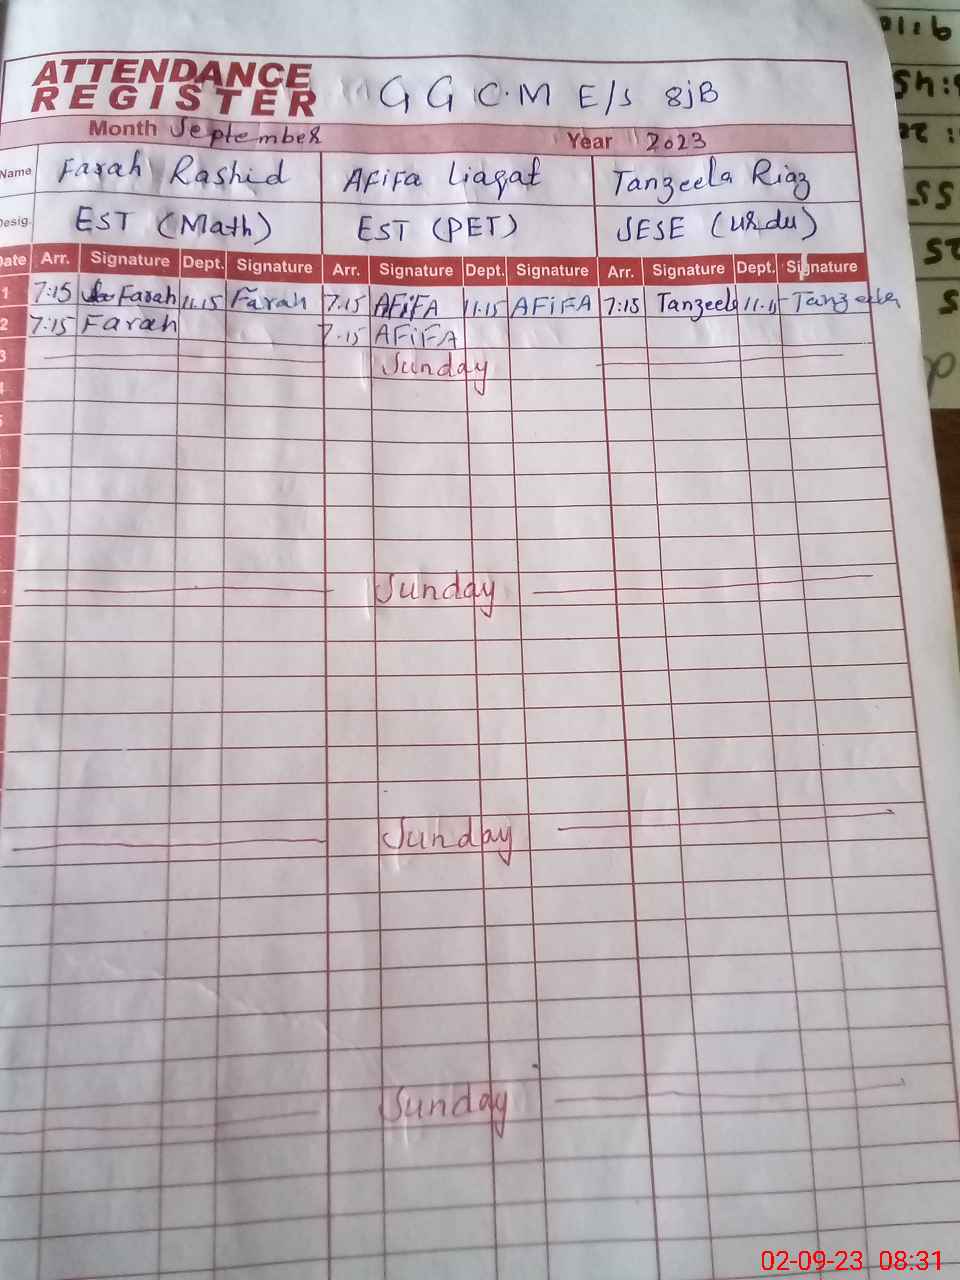 ATTENDANCE
REGISTER
G G C.M E/S 8jB
Month September Year 2023
Name Farah Rashid AFiFa Liaqat Tanzeela Riaz
Desig. EST (Math) EST (PET) SESE (urdu)
Date Arr. Signature Dept. Signature Arr. Signature Dept. Signature Arr. Signature Dept. Signature
1 7:15 Farah 11.15 Farah 7.15 AFiFA 11.15 AFiFA 7:15 Tanzeela 11.15 Tanzeela
2 7:15 Farah 7.15 AFiFA
3 Sunday
4
Sunday
Sunday
Sunday
02-09-23 08:31